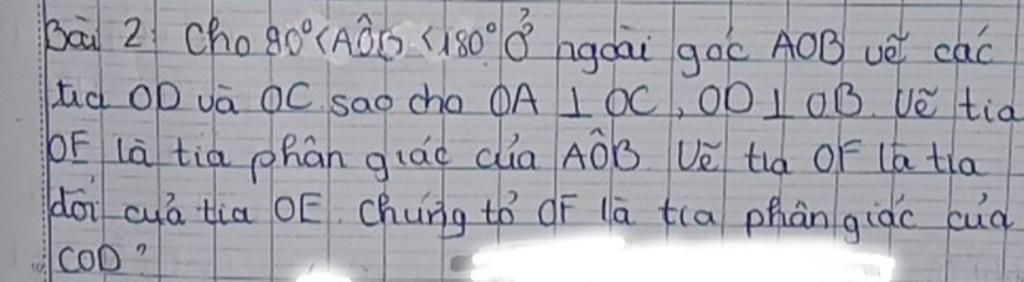 Bài 2: Cho 90°<AÔB <180° Ở ngoài góc AOB vẽ các
tia OD và OC sao cho OA ⊥ OC, OD ⊥ OB. Vẽ tia
OE là tia phân giác của AÔB Vẽ tia OF là tia
đối của tia OE. Chứng tỏ OF là tia phân giác của
COD?